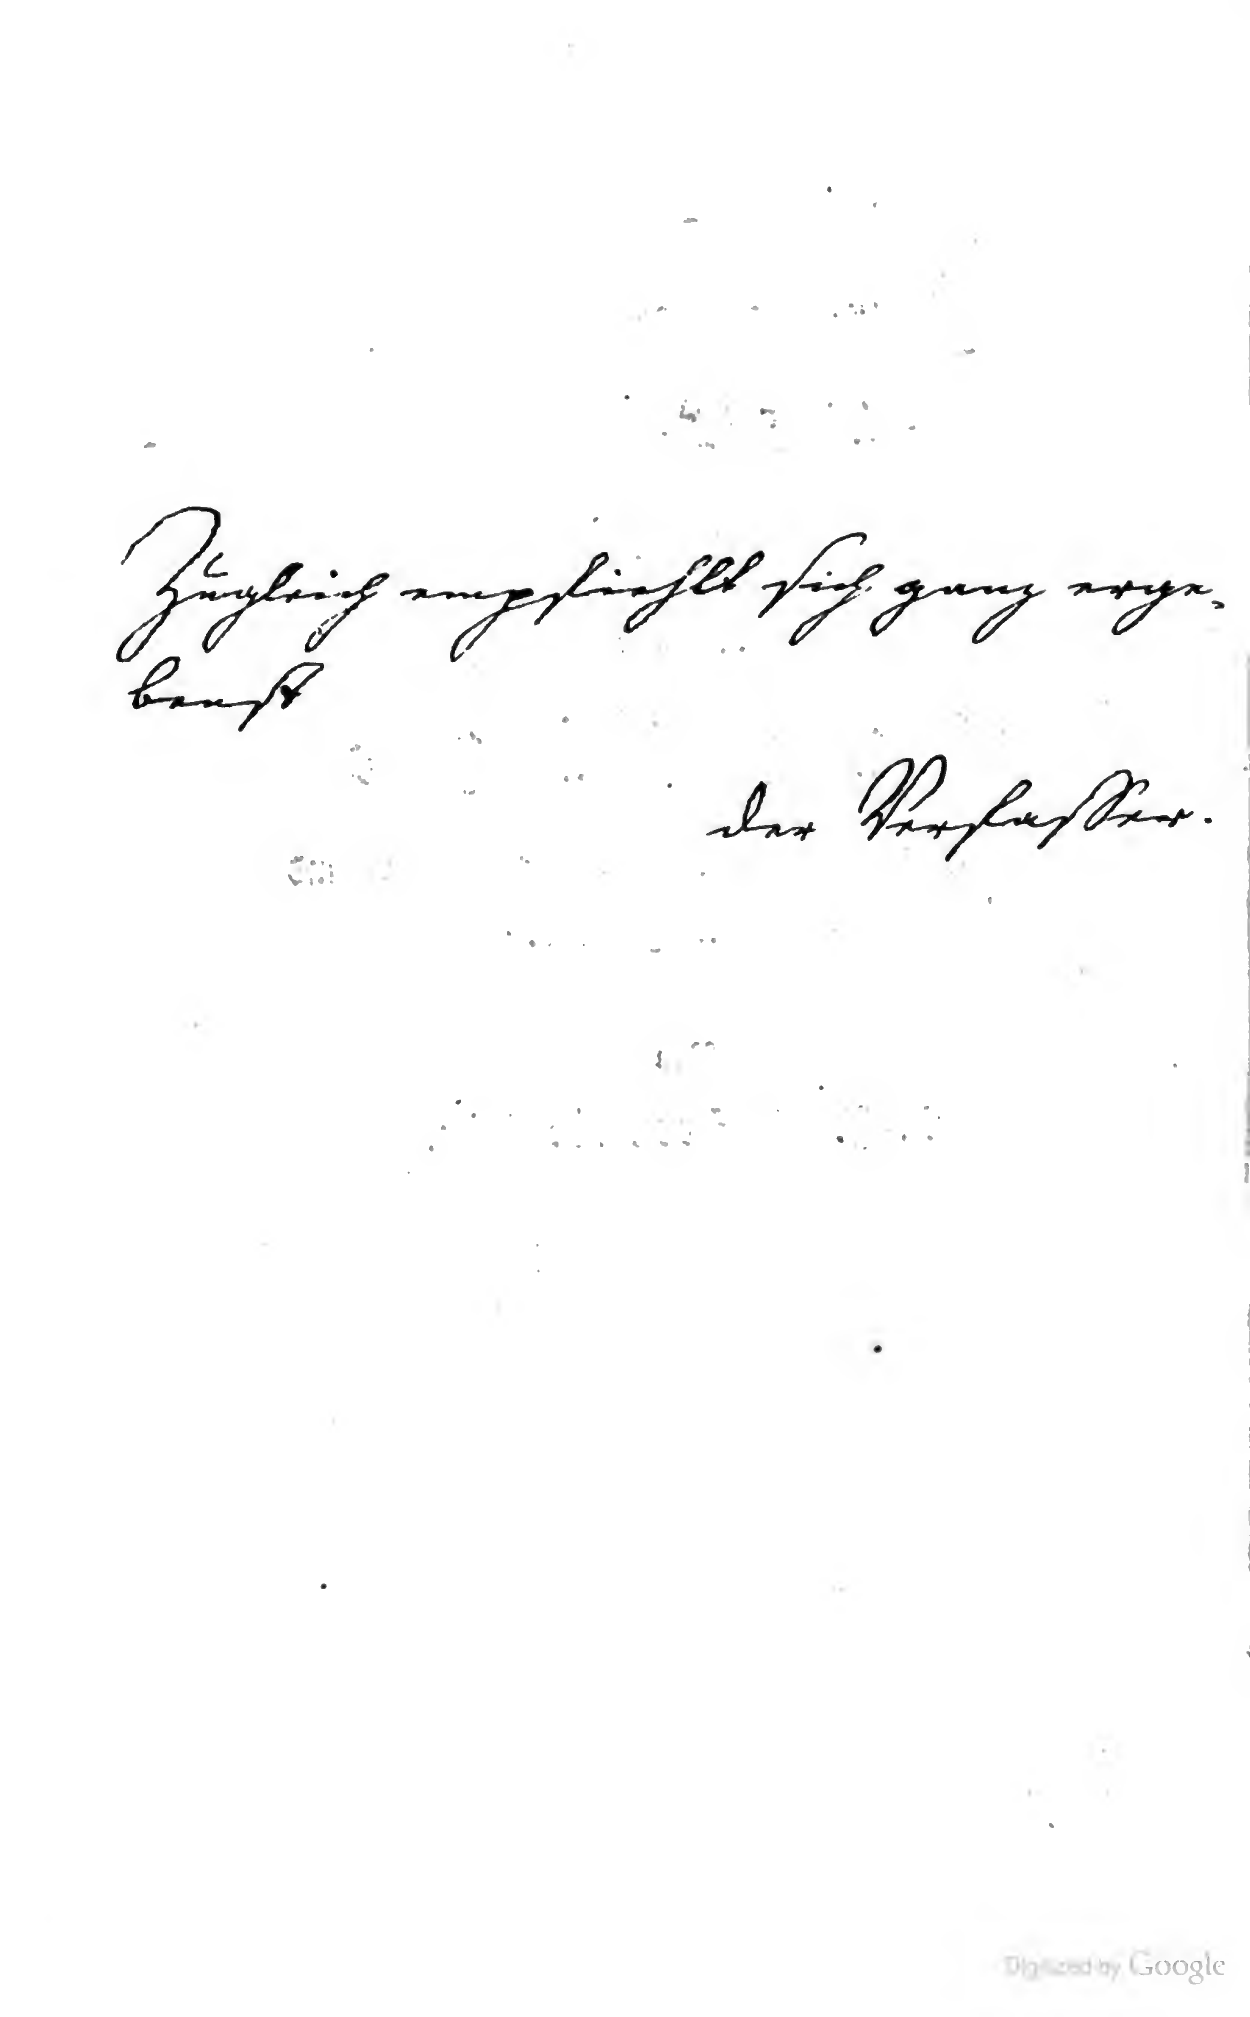 Zugleich empfiehlt sich ganz erge-
benst
der Verfasser.
Digitized by Google